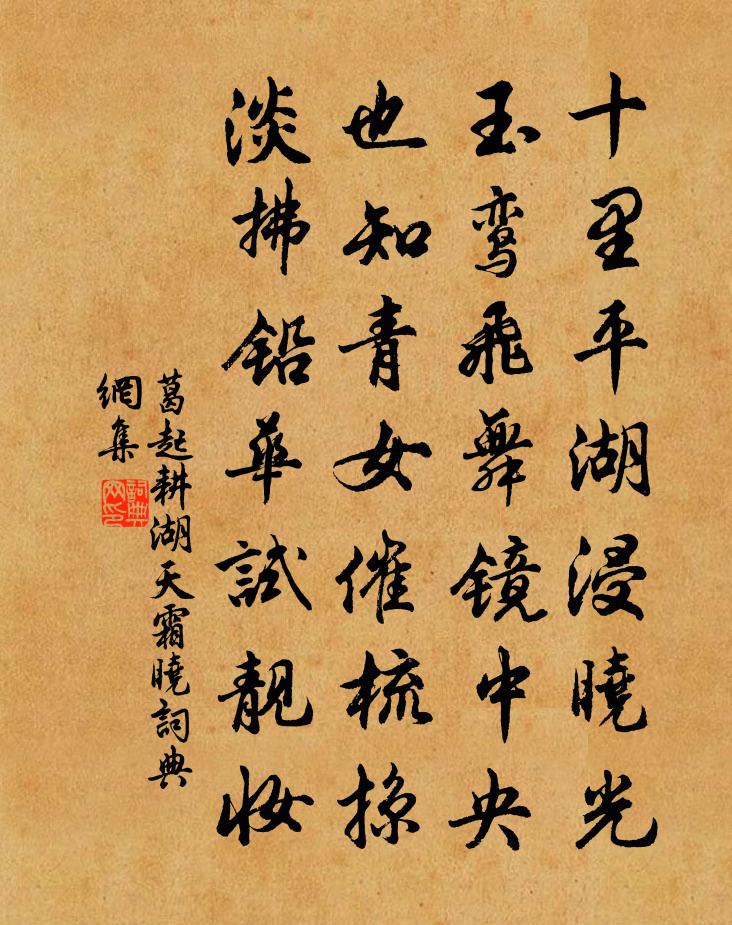 十里平湖浸曉光
玉鸾飛舞镜中央
也知青女催梳掠
淡拂鉛華試靚妝
葛起耕湖天霜曉詞典
網集
詞典
网印